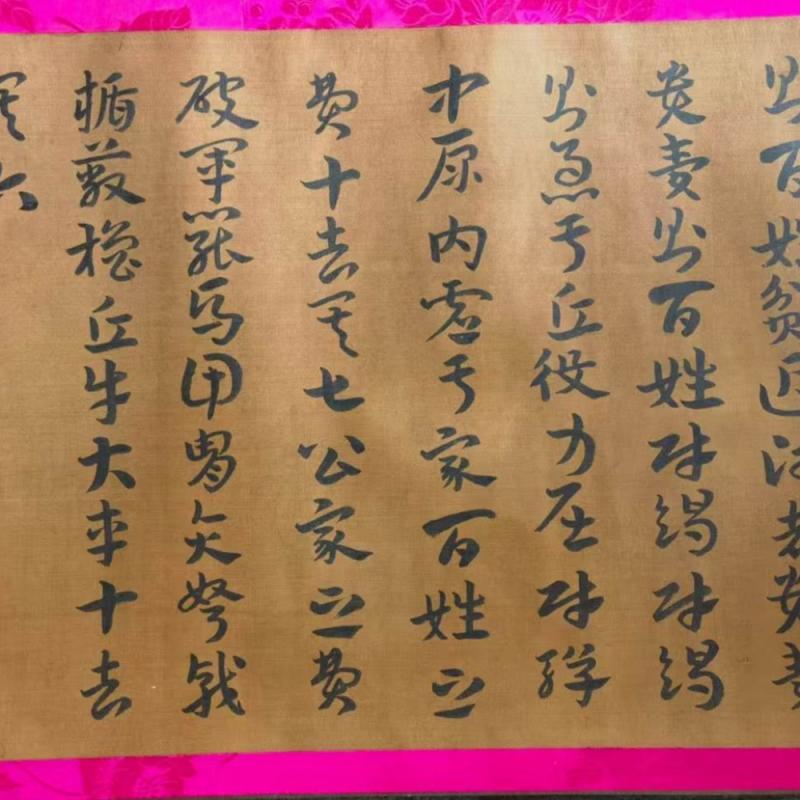 則百姓貧近師者貴賣
貴賣則百姓財竭財竭
則急于丘役力屈財殫
中原内虛于家百姓之
費十去其七公家之費
破軍罷馬甲冑矢弩戟
楯蔽櫓丘牛大車十去
其六